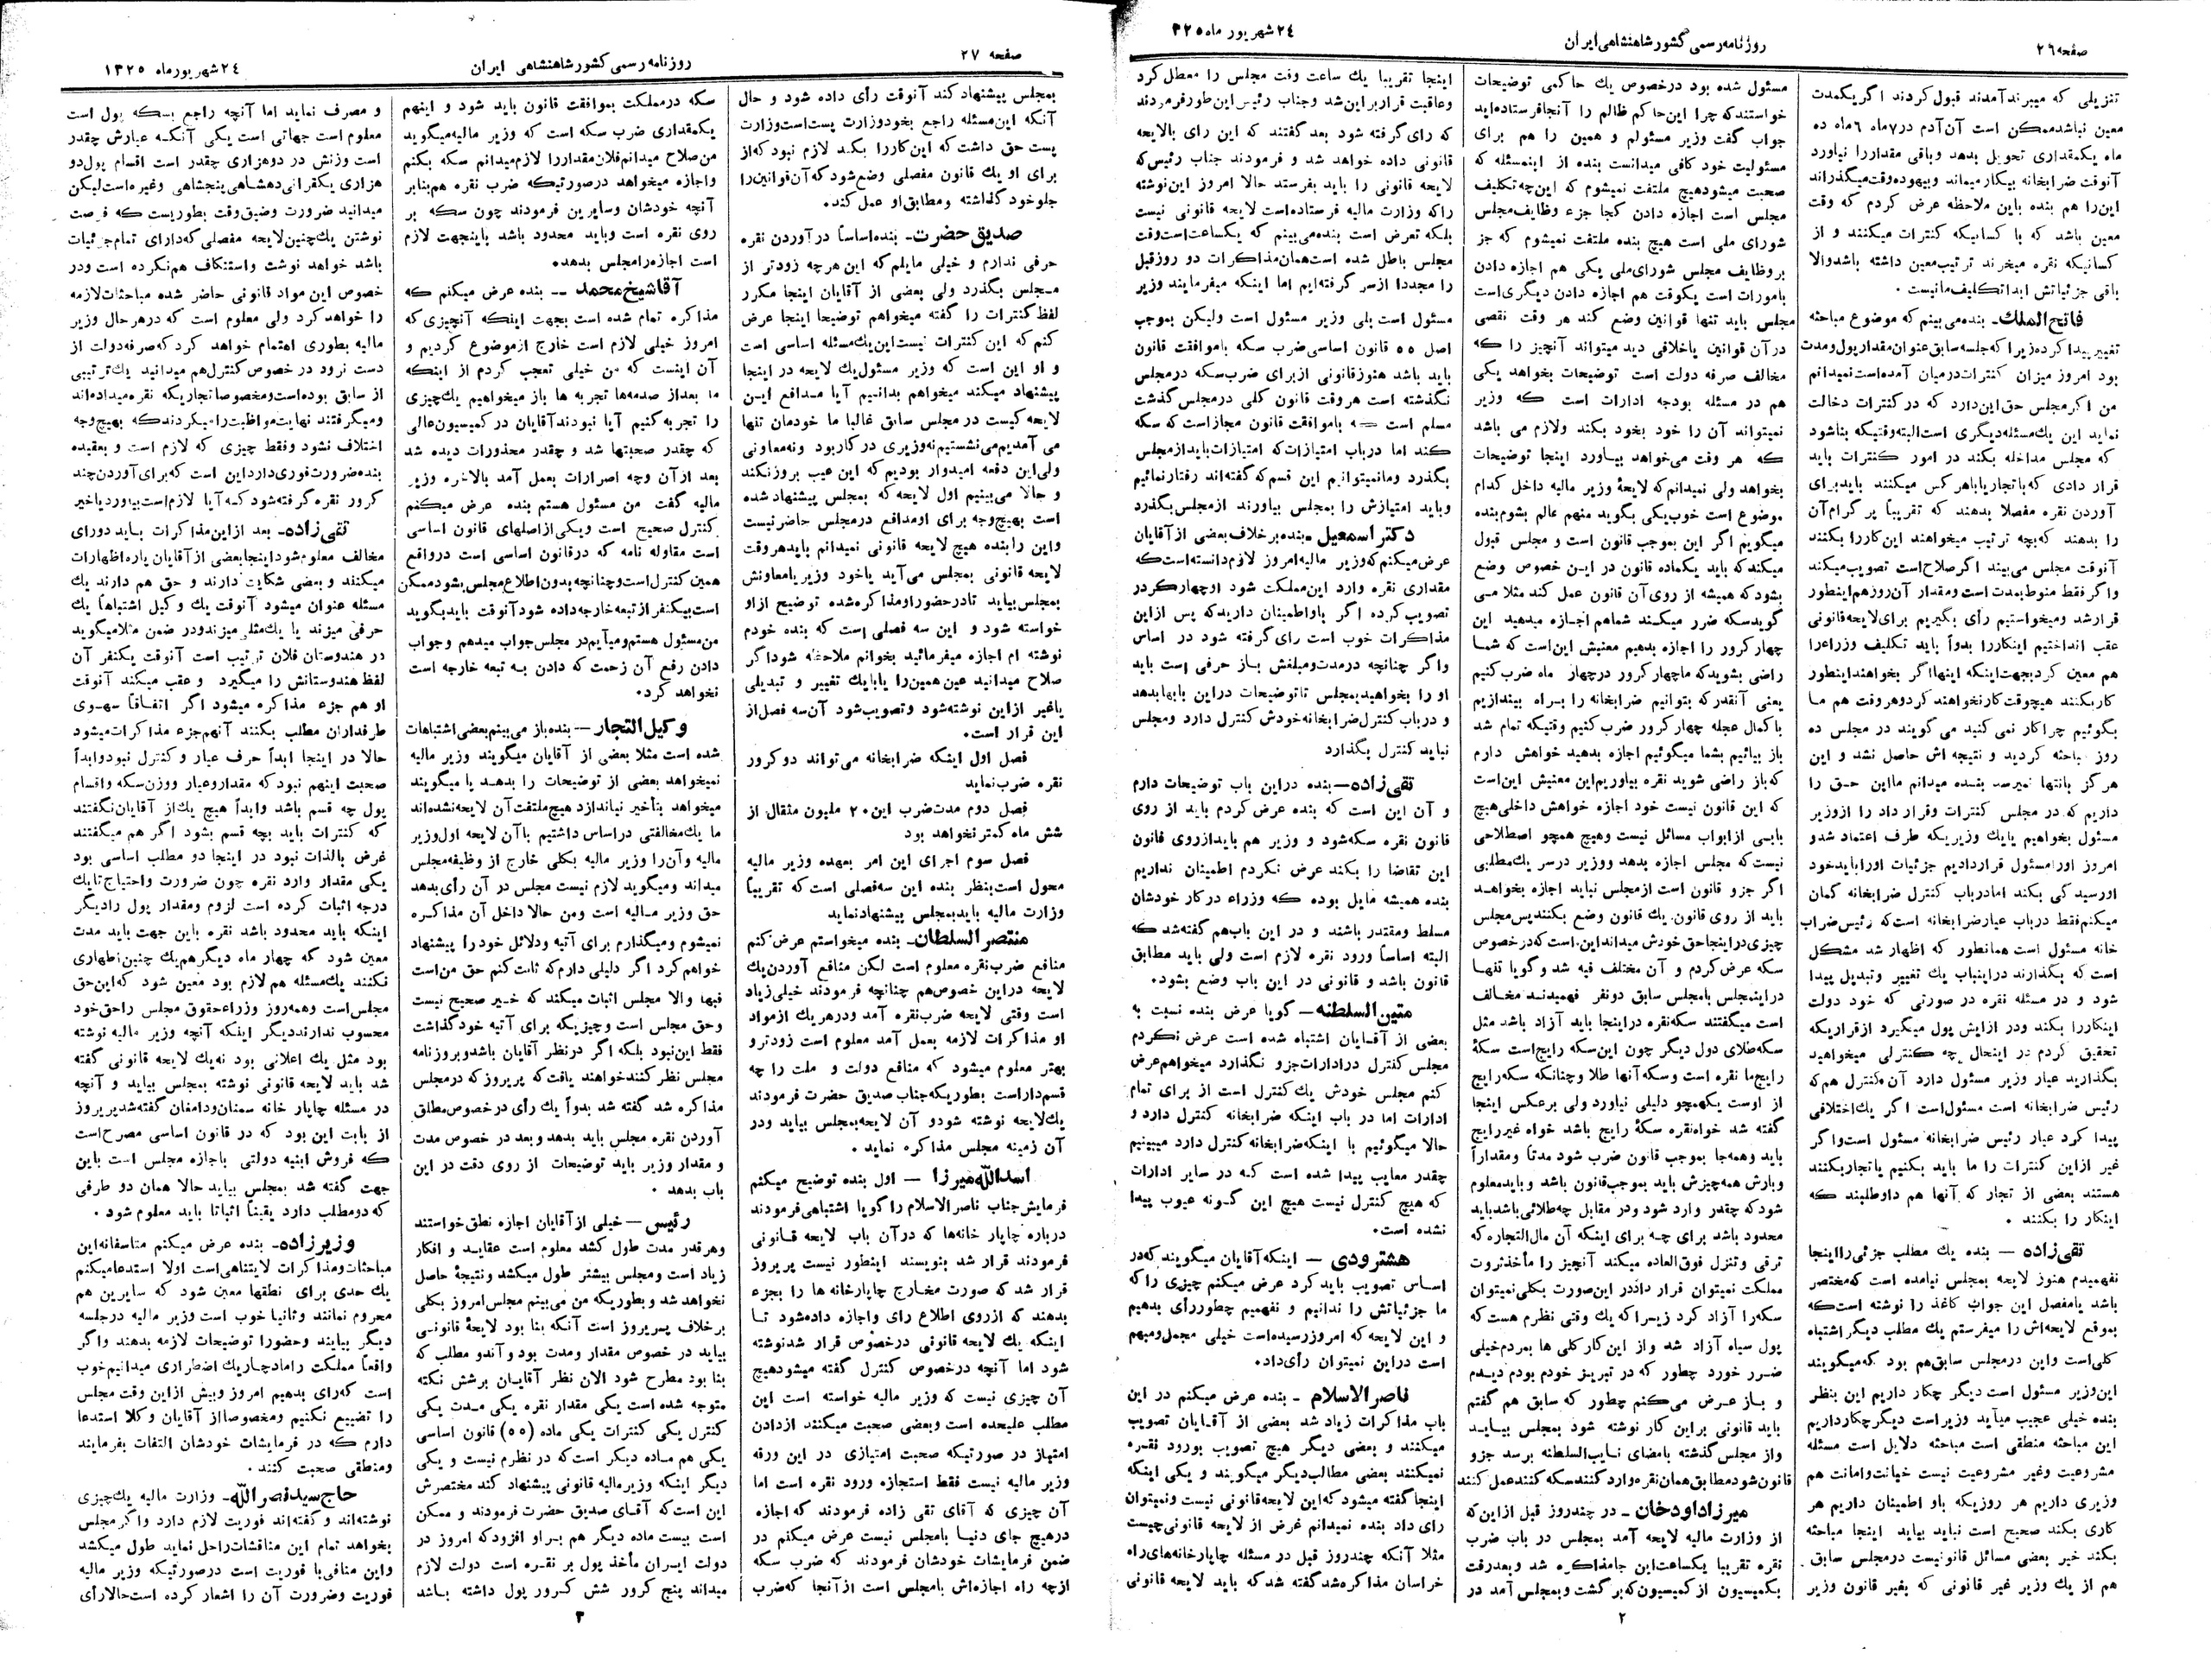 صفحه ۲۶
روزنامه رسمی کشور شاهنشاهی ایران
۲٤ شهریور ماه ۳۲۵
تنزیلی که میبرند آمدند قبول کردند اگر یکمدت
معین نباشد ممکن است آن آدم در ۷ ماه ٦ ماه ده
ماه یکمقداری تحویل بدهد و باقی مقدار را نیاورد
آنوقت ضرابخانه بیکار میماند و بیهوده وقت میگذراند
این را هم بنده باین ملاحظه عرض کردم که وقت
معین باشد که با کسانیکه کنترات میکنند و از
کسانیکه نقره میخرند ترتیب معین داشته باشد والا
باقی جزئیاتش ابدا تکلیف ما نیست .
فاتح الملک ـ بنده می بینم که موضوع مباحثه
تغییر پیدا کرده زیرا که جلسه سابق عنوان مقدار پول و مدت
بود امروز میزان کنترات در میان آمده است نمیدانم
من اگر مجلس حق این دارد که در کنترات دخالت
نماید این یک مسئله دیگری است البته وقتیکه بنا شود
که مجلس مداخله بکند در امور کنترات باید
قرار دادی که با تجار یا با هر کس میکنند باید برای
آوردن نقره مفصلا بدهند که تقریباً پرگرام آن
را بدهند که بچه ترتیب میخواهند این کار را بکنند
آنوقت مجلس می بیند اگر صلاح است تصویب میکند
و اگر فقط منوط بمدت است و مقدار آن روز هم اینطور
قرار شد و میخواستیم رأی بگیریم برای لایحه قانونی
عقب انداختیم اینکار را بدواً باید تکلیف وزراء را
هم معین کرد بجهت اینکه اینها اگر بخواهند اینطور
کار بکنند هیچوقت کار نخواهند کرد و هر وقت هم ما
بگوئیم چرا کار نمی کنید می گویند در مجلس ده
روز مباحثه کردید و نتیجه اش حاصل نشد و این
هرگز بآنتها نمیرسد بنده میدانم ما این حق را
داریم که در مجلس کنترات و قرار داد را از وزیر
مسئول بخواهیم یا یک وزیریکه طرف اعتماد شد و
امروز او را مسئول قرار دادیم جزئیات او را باید خود
او رسیدگی بکند اما در باب کنترل ضرابخانه گمان
میکنم فقط در باب عیار ضرابخانه است که رئیس ضراب
خانه مسئول است همانطور که اظهار شد مشکل
است که بگذارند در اینباب یک تغییر و تبدیل پیدا
شود و در مسئله نقره در صورتی که خود دولت
اینکار را بکند و در ازایش پول میگیرد از قراریکه
تحقیق کردم در اینحال چه کنترلی میخواهید
بگذارید عیار وزیر مسئول دارد آن کنترل هم که
رئیس ضرابخانه است مسئول است اگر یک اختلافی
پیدا کرد عیار رئیس ضرابخانه مسئول است و اگر
غیر از این کنترات را ما باید بکنیم یا تجار بکنند
هستند بعضی از تجار که آنها هم داوطلبند که
اینکار را بکنند .
تقی زاده — بنده یک مطلب جزئی را اینجا
نفهمیدم هنوز لایحه بمجلس نیامده است که مختصر
باشد یا مفصل این جواب کاغذ را نوشته است که
بموقع لایحه‌اش را میفرستم یک مطلب دیگر اشتباه
کلی است و این در مجلس سابق هم بود که میگویند
این وزیر مسئول است دیگر چکار داریم این بنظر
بنده خیلی عجیب میآید وزیر است دیگر چکار داریم
این مباحثه منطقی است مباحثه دلایل است مسئله
مشروعیت و غیر مشروعیت نیست خیانت و امانت هم
وزیری داریم هر روزیکه باو اطمینان داریم هر
کاری بکند صحیح است نباید بیاید اینجا مباحثه
بکند خیر بعضی مسائل قانونیست در مجلس سابق
هم از یک وزیر غیر قانونی که بغیر قانون وزیر
مسئول شده بود در خصوص یک حاکمی توضیحات
خواستند که چرا این حاکم ظالم را آنجا فرستاده‌اید
جواب گفت وزیر مسئولم و همین را هم برای
مسئولیت خود کافی میدانست بنده از اینمسئله که
صحبت میشود هیچ ملتفت نمیشوم که این چه تکلیف
مجلس است اجازه دادن کجا جزء وظایف مجلس
شورای ملی است هیچ بنده ملتفت نمیشوم که جز
بر وظایف مجلس شورای ملی یکی هم اجازه دادن
بامورات است یکوقت هم اجازه دادن دیگری است
مجلس باید تنها قوانین وضع کند هر وقت نقصی
در آن قوانین یا خلافی دید میتواند آنچیز را که
مخالف صرفه دولت است توضیحات بخواهد یکی
هم در مسئله بودجه ادارات است که وزیر
نمیتواند آن را خود بخود بکند و لازم می باشد
که هر وقت می‌خواهد بیاورد اینجا توضیحات
بخواهد ولی نمیدانم که لایحهٔ وزیر مالیه داخل کدام
موضوع است خوب یکی بگوید منهم عالم بشوم بنده
میگویم اگر این بموجب قانون است و مجلس قبول
میکند که باید یکماده قانون در این خصوص وضع
بشود که همیشه از روی آن قانون عمل کند مثلا می
گوید سکه ضرر میکند شما هم اجازه میدهید این
چهار کرور را اجازه بدهیم معنیش این است که شما
راضی بشوید که ما چهار کرور در چهار ماه ضرب کنیم
یعنی آنقدر که بتوانیم ضرابخانه را براه بیندازیم
با کمال عجله چهار کرور ضرب کنیم وقتیکه تمام شد
باز بیائیم بشما میگوئیم اجازه بدهید خواهش دارم
که باز راضی شوید نقره بیاوریم این معنیش این است
که این قانون نیست خود اجازه خواهش داخلی هیچ
بابی از ابواب مسائل نیست و هیچ همچو اصطلاحی
نیست که مجلس اجازه بدهد و وزیر در سر یک مطلبی
اگر جزو قانون است از مجلس نباید اجازه بخواهد
باید از روی قانون. یک قانون وضع بکنند پس مجلس
چیزی در اینجا حق خودش میداند این است که در خصوص
سکه عرض کردم و آن مختلف فیه شد و گویا تنها
در اینمجلس یا مجلس سابق دو نفر فهمیدند مخالف
است میگفتند سکه نقره در اینجا باید آزاد باشد مثل
سکه طلای دول دیگر چون این سکه رایج است سکهٔ
رایج ما نقره است و سکه آنها طلا و چنانکه سکه رایج
از اوست یکهمچو دلیلی نیاورد ولی برعکس اینجا
گفته شد خواه نقره سکهٔ رایج باشد خواه غیر رایج
باید و همه جا بموجب قانون ضرب شود مدتاً و مقداراً
و بارش همه چیزش باید بموجب قانون باشد و باید معلوم
شود که چقدر وارد شود و در مقابل چه طلائی باشد باید
محدود باشد برای چه برای اینکه آن مال التجاره که
ترقی و تنزل فوق العاده میکند آنچیز را مأخذ ثروت
مملکت نمیتوان قرار داد در این صورت بکلی نمیتوان
سکه را آزاد کرد زیرا که یک وقتی نظرم هست که
پول سیاه آزاد شد و از این کار کلی ها بمردم خیلی
ضرر خورد چطور که در تبریز خودم بودم دیدم
و باز عرض می‌کنم چطور که سابق هم گفتم
باید قانونی بر این کار نوشته شود بمجلس بیاید
و از مجلس گذشته بامضای نایب السلطنه برسد جزو
قانون شود مطابق همان نقره وارد کنند سکه کنند عمل کنند
میرزا داود خان ـ در چند روز قبل از این که
از وزارت مالیه لایحه آمد بمجلس در باب ضرب
نقره تقریبا یکساعت این جا مذاکره شد و بعد رفت
بکمیسیون از کمیسیون که برگشت و بمجلس آمد در
اینجا تقریبا یک ساعت وقت مجلس را معطل کرد
و عاقبت قرار بر این شد و جناب رئیس این طور فرمودند
که رای گرفته شود بعد گفتند که این رای بالایحه
قانونی داده خواهد شد و فرمودند جناب رئیس که
لایحه قانونی را باید بفرستد حالا امروز این نوشته
را که وزارت مالیه فرستاده است لایحه قانونی نیست
بلکه تعرض است بنده می‌بینم که یکساعت است وقت
مجلس باطل شده است همان مذاکرات دو روز قبل
را مجددا از سر گرفته‌ایم اما اینکه میفرمایند وزیر
مسئول است بلی وزیر مسئول است ولیکن بموجب
اصل ۵۵ قانون اساسی ضرب سکه با موافقت قانون
باید باشد هنوز قانونی از برای ضرب سکه در مجلس
نگذشته است هر وقت قانون کلی در مجلس گذشت
مسلم است که باموافقت قانون مجاز است که سکه
کند اما در باب امتیازات که امتیازات باید از مجلس
بگذرد و ما نمیتوانیم این قسم که گفته‌اند رفتار نمائیم
و باید امتیازش را بمجلس بیاورند از مجلس بگذرد
دکتر اسمعیل ـ بنده بر خلاف بعضی از آقایان
عرض میکنم که وزیر مالیه امروز لازم دانسته است که
مقداری نقره وارد این مملکت شود او چهار کرور
تصویب کرده اگر باو اطمینان دارید که پس از این
مذاکرات خوب است رای گرفته شود در اساس
و اگر چنانچه در مدت و مبلغش باز حرفی است باید
او را بخواهید بمجلس تا توضیحات در این بابها بدهد
و در باب کنترل ضرابخانه خودش کنترل دارد و مجلس
نباید کنترل بگذارد
تقی زاده — بنده در این باب توضیحات دارم
و آن این است که بنده عرض کردم باید از روی
قانون نقره سکه شود و وزیر هم باید از روی قانون
این تقاضا را بکند عرض نکردم اطمینان نداریم
بنده همیشه مایل بوده که وزراء در کار خودشان
مسلط و مقتدر باشند و در این باب هم گفته شد که
البته اساساً ورود نقره لازم است ولی باید مطابق
قانون باشد و قانونی در این باب وضع بشود.
متین السلطنه — گویا عرض بنده نسبت به
بعضی از آقایان اشتباه شده است عرض نکردم
مجلس کنترل در ادارات جزو نگذارد میخواهم عرض
کنم مجلس خودش یک کنترل است از برای تمام
ادارات اما در باب اینکه ضرابخانه کنترل دارد و
حالا میگوئیم با اینکه ضرابخانه کنترل دارد میبینیم
چقدر معایب پیدا شده است که در سایر ادارات
که هیچ کنترل نیست هیچ این گونه عیوب پیدا
نشده است.
هشترودی — اینکه آقایان میگویند که در
اساس تصویب باید کرد عرض میکنم چیزی را که
ما جزئیاتش را ندانیم و نفهمیم چطور رأی بدهیم
و این لایحه که امروز رسیده است خیلی مجمل و مبهم
است در این نمیتوان رأی داد.
ناصر الاسلام ـ بنده عرض میکنم در این
باب مذاکرات زیاد شد بعضی از آقایان تصویب
میکنند و بعضی دیگر هیچ تصویب بورود نقره
نمیکنند بعضی مطالب دیگر میگویند و یکی اینکه
اینجا گفته میشود که این لایحه قانونی نیست و نمیتوان
رای داد بنده نمیدانم غرض از لایحه قانونی چیست
مثلا آنکه چند روز قبل در مسئله چاپارخانه‌های راه
خراسان مذاکره شد گفته شد که باید لایحه قانونی
۲
صفحه ۲۷
روزنامه رسمی کشور شاهنشاهی ایران
۲٤ شهریور ماه ۱۳۲۵
بمجلس پیشنهاد کند آنوقت رأی داده شود و حال
آنکه این مسئله راجع بخود وزارت پست است وزارت
پست حق داشت که این کار را بکند لازم نبود که از
برای او یک قانون مفصلی وضع شود که آن قوانین را
جلو خود گذاشته و مطابق او عمل کند.
صدیق حضرت ـ بنده اساساً در آوردن نقره
حرفی ندارم و خیلی مایلم که این هر چه زودتر از
مجلس بگذرد ولی بعضی از آقایان اینجا مکرر
لفظ کنترات را گفته میخواهم توضیحا اینجا عرض
کنم که این کنترات نیست این یک مسئله اساسی است
و او این است که وزیر مسئول یک لایحه در اینجا
پیشنهاد میکند میخواهم بدانیم آیا مدافع این
لایحه کیست در مجلس سابق غالبا ما خودمان تنها
می آمدیم می نشستیم نه وزیری در کار بود و نه معاونی
ولی این دفعه امیدوار بودیم که این عیب بروز نکند
و حالا می‌بینیم اول لایحه که بمجلس پیشنهاد شده
است بهیچوجه برای او مدافع در مجلس حاضر نیست
و این را بنده هیچ لایحه قانونی نمیدانم باید هر وقت
لایحه قانونی بمجلس می‌آید یا خود وزیر یا معاونش
بمجلس بیاید تا در حضور او مذاکره شده توضیح از او
خواسته شود و این سه فصلی است که بنده خودم
نوشته ام اجازه میفرمائید بخوانم ملاحظه شود اگر
صلاح میدانید عین همین را یا با یک تغییر و تبدیلی
یا غیر از این نوشته شود و تصویب شود آن سه فصل از
این قرار است.
فصل اول اینکه ضرابخانه می‌تواند دو کرور
نقره ضرب نماید
فصل دوم مدت ضرب این ۲۰ ملیون مثقال از
شش ماه کمتر نخواهد بود
فصل سوم اجرای این امر بعهده وزیر مالیه
محول است بنظر بنده این سه فصلی است که تقریباً
وزارت مالیه باید بمجلس پیشنهاد نماید
منتصر السلطان ـ بنده میخواستم عرض کنم
منافع ضرب نقره معلوم است لکن منافع آوردن یک
لایحه در این خصوص هم چنانچه فرمودند خیلی زیاد
است وقتی لایحه ضرب نقره آمد و در هر یک از مواد
او مذاکرات لازمه بعمل آمد معلوم است زودتر و
بهتر معلوم میشود که منافع دولت و ملت را چه
قسم دار است بطوریکه جناب صدیق حضرت فرمودند
یک لایحه نوشته شود و آن لایحه بمجلس بیاید و در
آن زمینه مجلس مذاکره نماید .
اسدالله میرزا — اول بنده توضیح میکنم
فرمایش جناب ناصر الاسلام را گویا اشتباهی فرمودند
درباره چاپار خانه‌ها که در آن باب لایحه قانونی
فرمودند قرار شد بنویسند اینطور نیست پریروز
قرار شد که صورت مخارج چاپارخانه ها را بجزء
بدهند که از روی اطلاع رای و اجازه داده شود تا
اینکه یک لایحه قانونی در خصوص قرار شد نوشته
شود اما آنچه در خصوص کنترل گفته میشود هیچ
آن چیزی نیست که وزیر مالیه خواسته است این
مطلب علیحده است و بعضی صحبت میکنند از دادن
امتیاز در صورتیکه صحبت امتیازی در این ورقه
وزیر مالیه نیست فقط استجازه ورود نقره است اما
آن چیزی که آقای تقی زاده فرمودند که اجازه
در هیچ جای دنیا با مجلس نیست عرض میکنم در
ضمن فرمایشات خودشان فرمودند که ضرب سکه
از چه راه اجازه‌اش با مجلس است از آنجا که ضرب
سکه در مملکت بموافقت قانون باید شود و اینهم
یکمقداری ضرب سکه است که وزیر مالیه میگوید
من صلاح میدانم فلان مقدار را لازم میدانم سکه بکنم
و اجازه میخواهد در صورتیکه ضرب نقره هم بنابر
آنچه خودشان و سایرین فرمودند چون سکه بر
روی نقره است و باید محدود باشد باینجهت لازم
است اجازه را مجلس بدهد.
آقا شیخ محمد ـ بنده عرض میکنم که
مذاکره تمام شده است بجهت اینکه آنچیزی که
امروز خیلی لازم است خارج از موضوع کردیم و
آن اینست که من خیلی تعجب کردم از اینکه
ما بعد از صدمه‌ها تجربه ها باز میخواهیم یک چیزی
را تجربه کنیم آیا نبودند آقایان در کمیسیون عالی
که چقدر صحبتها شد و چقدر محذورات دیده شد
بعد از آن وجه اصرارات بعمل آمد بالاخره وزیر
مالیه گفت من مسئول هستم بنده عرض میکنم
کنترل صحیح است و یکی از اصلهای قانون اساسی
است مقاوله نامه که در قانون اساسی است در واقع
همین کنترل است و چنانچه بدون اطلاع مجلس بشود ممکن
است بیکنفر از تبعه خارجه داده شود آنوقت باید بگوید
من مسئول هستم و میآیم در مجلس جواب میدهم و جواب
دادن رفع آن زحمت که دادن به تبعه خارجه است
نخواهد کرد.
وکیل التجار — بنده باز می بینم بعضی اشتباهات
شده است مثلا بعضی از آقایان میگویند وزیر مالیه
نمیخواهد بعضی از توضیحات را بدهد یا میگویند
میخواهد بتأخیر نیاندازد هیچ ملتفت آن لایحه نشده‌اند
ما یک مخالفتی در اساس داشتیم با آن لایحه اول وزیر
مالیه و آن را وزیر مالیه بکلی خارج از وظیفه مجلس
میداند و میگوید لازم نیست مجلس در آن رأی بدهد
حق وزیر مالیه است و من حالا داخل آن مذاکره
نمیشوم و میگذارم برای آتیه و دلائل خود را پیشنهاد
خواهم کرد اگر دلیلی دارم که ثابت کنم حق من است
فبها والا مجلس اثبات میکند که خیر صحیح نیست
و حق مجلس است و چیزیکه برای آتیه خود گذاشت
فقط این نبود بلکه اگر در نظر آقایان باشد و بروزنامه
مجلس نظر کنند خواهند یافت که پریروز که در مجلس
مذاکره شد گفته شد بدواً یک رأی در خصوص مطلق
آوردن نقره مجلس باید بدهد و بعد در خصوص مدت
و مقدار وزیر باید توضیحات از روی دقت در این
باب بدهد .
رئیس — خیلی از آقایان اجازه نطق خواستند
و هر قدر مدت طول کشد معلوم است عقاید و افکار
زیاد است و مجلس بیشتر طول میکشد و نتیجهٔ حاصل
نخواهد شد و بطوریکه من می بینم مجلس امروز بکلی
بر خلاف پریروز است آنکه بنا بود لایحهٔ قانونی
بیاید در خصوص مقدار و مدت بود و آندو مطلب که
بنا بود مطرح شود الان نظر آقایان برشش نکته
متوجه شده است یکی مقدار نقره یکی مدت یکی
کنترل یکی کنترات یکی ماده (۵۵) قانون اساسی
یکی هم ماده دیگر است که در نظرم نیست و یکی
دیگر اینکه وزیر مالیه قانونی پیشنهاد کند مختصرش
این است که آقای صدیق حضرت فرمودند و ممکن
است بیست ماده دیگر هم بر او افزود که امروز در
دولت ایران مأخذ پول بر نقره است دولت لازم
میداند پنج کرور شش کرور پول داشته باشد
و مصرف نماید اما آنچه راجع بسکه پول است
معلوم است جهاتی است یکی آنکه عیارش چقدر
است وزنش در دو هزاری چقدر است اقسام پول دو
هزاری یکقرانی دهشاهی پنجشاهی و غیره است لیکن
میدانید ضرورت و ضیق وقت بطوریست که فرصت
نوشتن یک چنین لایحه مفصلی که دارای تمام جزئیات
باشد خواهد نوشت و استنکاف هم نکرده است و در
خصوص این مواد قانونی حاضر شده مباحثات لازمه
را خواهد کرد ولی معلوم است که در هر حال وزیر
مالیه بطوری اهتمام خواهد کرد که صرفه دولت از
دست نرود در خصوص کنترل هم میدانید یک ترتیبی
از سابق بوده است و مخصوصا تجاریکه نقره میداده‌اند
و میگرفتند نهایت مواظبت را میکردند که بهیچوجه
اختلاف نشود و فقط چیزی که لازم است و بعقیده
بنده ضرورت فوری دارد این است که برای آوردن چند
کرور نقره گرفته شود که آیا لازم است بیاورد یا خیر
تقی زاده ـ بعد از این مذاکرات باید دورای
مخالف معلوم شود اینجا بعضی از آقایان پاره اظهارات
میکنند و بعضی شکایت دارند و حق هم دارند یک
مسئله عنوان میشود آنوقت یک وکیل اشتباهاً یک
حرفی میزند یا یک مثلی میزند و در ضمن مثلا میگوید
در هندوستان فلان ترتیب است آنوقت یکنفر آن
لفظ هندوستانش را میگیرد و عقب میکند آنوقت
او هم جزء مذاکره میشود اگر اتفاقاً سهوی
طرفداران مطلب بکنند آنهم جزء مذاکرات میشود
حالا در اینجا ابداً حرف عیار و کنترل نبود و ابداً
صحبت اینهم نبود که مقدار و عیار و وزن سکه و اقسام
پول چه قسم باشد و ابداً هیچ یک از آقایان نگفتند
که کنترات باید بچه قسم بشود اگر هم میگفتند
غرض بالذات نبود در اینجا دو مطلب اساسی بود
یکی مقدار وارد نقره چون ضرورت و احتیاج تا یک
درجه اثبات کرده است لزوم و مقدار پول را دیگر
اینکه باید محدود باشد نقره باین جهت باید مدت
معین شود که چهار ماه دیگر هم یک چنین اظهاری
نکنند یک مسئله هم لازم بود معین شود که این حق
مجلس است و همه روز وزراء حقوق مجلس را حق خود
محسوب ندارند دیگر اینکه آنچه وزیر مالیه نوشته
بود مثل یک اعلانی بود نه یک لایحه قانونی گفته
شد باید لایحه قانونی نوشته بمجلس بیاید و آنچه
در مسئله چاپار خانه سمنان و دامغان گفته شد پریروز
از بابت این بود که در قانون اساسی مصرح است
که فروش ابنیه دولتی باجازه مجلس است باین
جهت گفته شد بمجلس بیاید حالا همان دو طرفی
که دو مطلب دارد یقیناً اثباتا باید معلوم شود .
وزیر زاده ـ بنده عرض میکنم متأسفانه این
مباحثات و مذاکرات لایتناهی است اولا استدعا میکنم
یک حدی برای نطقها معین شود که سایرین هم
محروم نمانند و ثانیا خوب است وزیر مالیه در جلسه
دیگر بیایند و حضورا توضیحات لازمه بدهند و اگر
واقعاً مملکت را دچار یک اضطراری میدانیم خوب
است که رای بدهیم امروز و بیش از این وقت مجلس
را تضییع نکنیم و مخصوصا از آقایان وکلا استدعا
دارم که در فرمایشات خودشان التفات بفرمایند
و منطقی صحبت کنند .
حاج سید نصرالله ـ وزارت مالیه یک چیزی
نوشته‌اند و گفته‌اند فوریت لازم دارد و اگر مجلس
بخواهد تمام این مناقشات را حل نماید طول میکشد
و این منافی با فوریت است در صورتیکه وزیر مالیه
فوریت و ضرورت آن را اشعار کرده است حالا رأی
۳